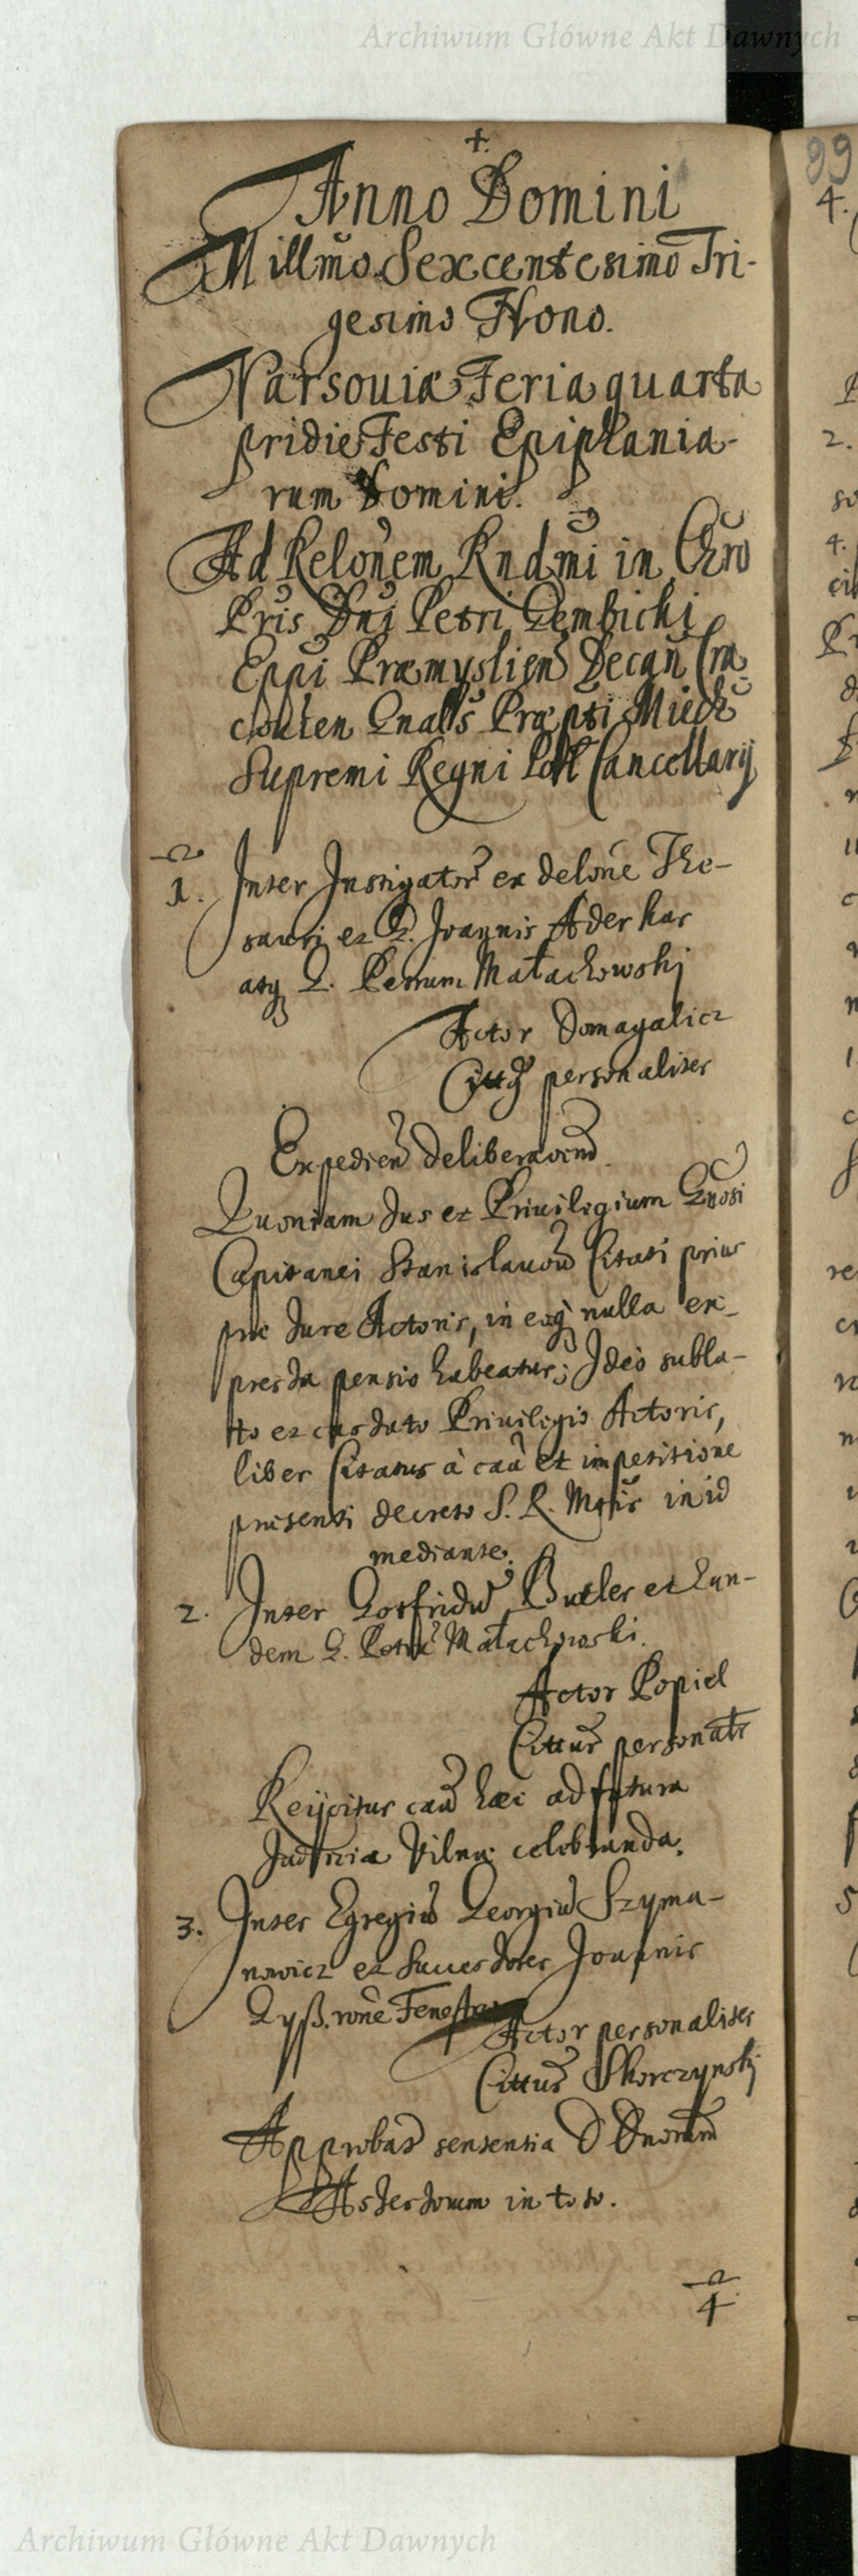 Archiwum Główne Akt Dawnych
+
Anno Domini
Millmo Sexcentesimo Tri-
gesimo Nono.
Varsouiæ Feria quarta
pridie Festi Epiphania-
rum Domini.
Ad Relonem Rndmi in Chro
Pris Dni Petri Gembicki
Eppi Præmyslien Decani Cra
couien Gnalis Præpti Miech
Supremi Regni Poll Cancellarij
1. Inter Instigator ex delone The-
sauri et G. Joannis Aderkas
atq G. Petrum Małachowskj
Actor Domagalicz
Cittg personaliter
Expedien deliberaoem
Quoniam Jus et Priuilegium Gnosi
Capitanei Stanislauow Citati prius
sit Jure Actoris, in eoq nulla ex-
pressa pensio habeatur; Ideo subla-
to et cassato Priuilegio Actoris,
liber Citatus à caũ et impetitione
præsenti decreto S. R. Mtis in id
mediante.
2. Inter Gotfridũ Butler et Eun-
dem G. Petrũ Małachowski.
Actor Popiel
Cittus personalr
Reijcitur caũ hæc ad futura
Judicia Vilnæ celebranda.
3. Inter Egregiũ Georgiũ Szyma-
nowicz et Successores Joannis
Gyß. rone Fenestra
Actor personaliter
Cittus Skorczynskj
Approbat sententia D Dnorum
Assessorum in toto.
4
99
4.
2.
4.
5
Archiwum Główne Akt Dawnych